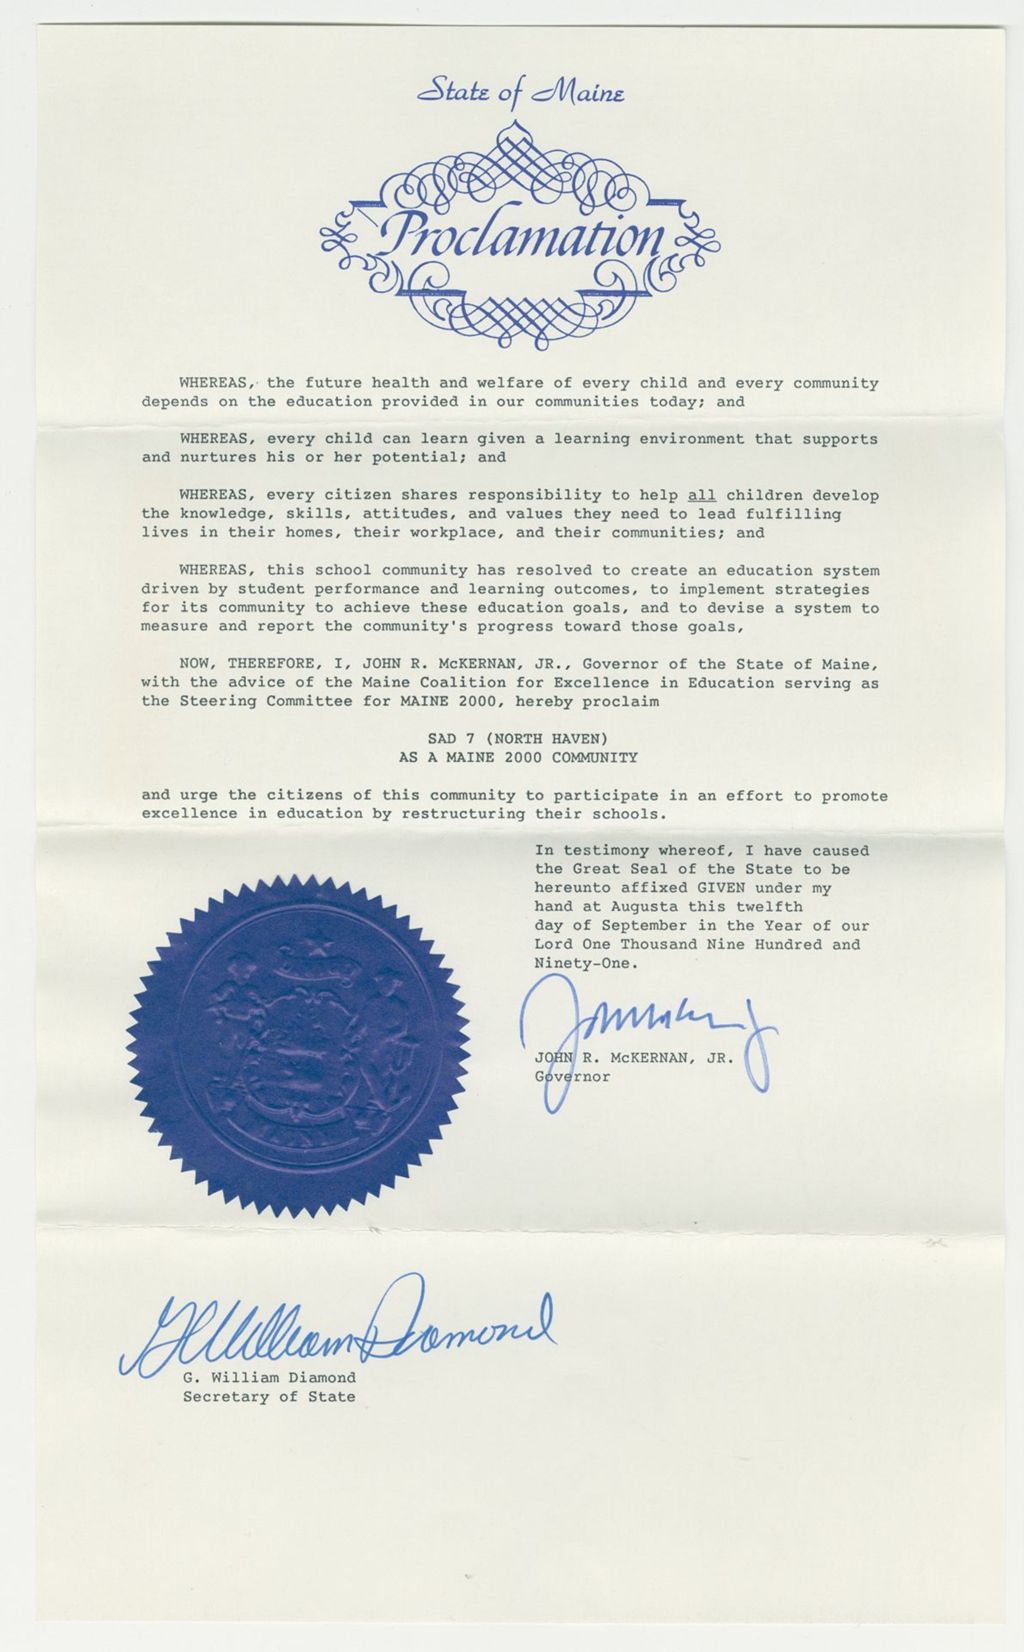 State of Maine
Proclamation
WHEREAS, the future health and welfare of every child and every community
depends on the education provided in our communities today; and
WHEREAS, every child can learn given a learning environment that supports
and nurtures his or her potential; and
WHEREAS, every citizen shares responsibility to help all children develop
the knowledge, skills, attitudes, and values they need to lead fulfilling
lives in their homes, their workplace, and their communities; and
WHEREAS, this school community has resolved to create an education system
driven by student performance and learning outcomes, to implement strategies
for its community to achieve these education goals, and to devise a system to
measure and report the community's progress toward those goals,
NOW, THEREFORE, I, JOHN R. McKERNAN, JR., Governor of the State of Maine,
with the advice of the Maine Coalition for Excellence in Education serving as
the Steering Committee for MAINE 2000, hereby proclaim
SAD 7 (NORTH HAVEN)
AS A MAINE 2000 COMMUNITY
and urge the citizens of this community to participate in an effort to promote
excellence in education by restructuring their schools.
In testimony whereof, I have caused
the Great Seal of the State to be
hereunto affixed GIVEN under my
hand at Augusta this twelfth
day of September in the Year of our
Lord One Thousand Nine Hundred and
Ninety-One.
JOHN R. McKERNAN, JR.
Governor
G William Diamond
G. William Diamond
Secretary of State